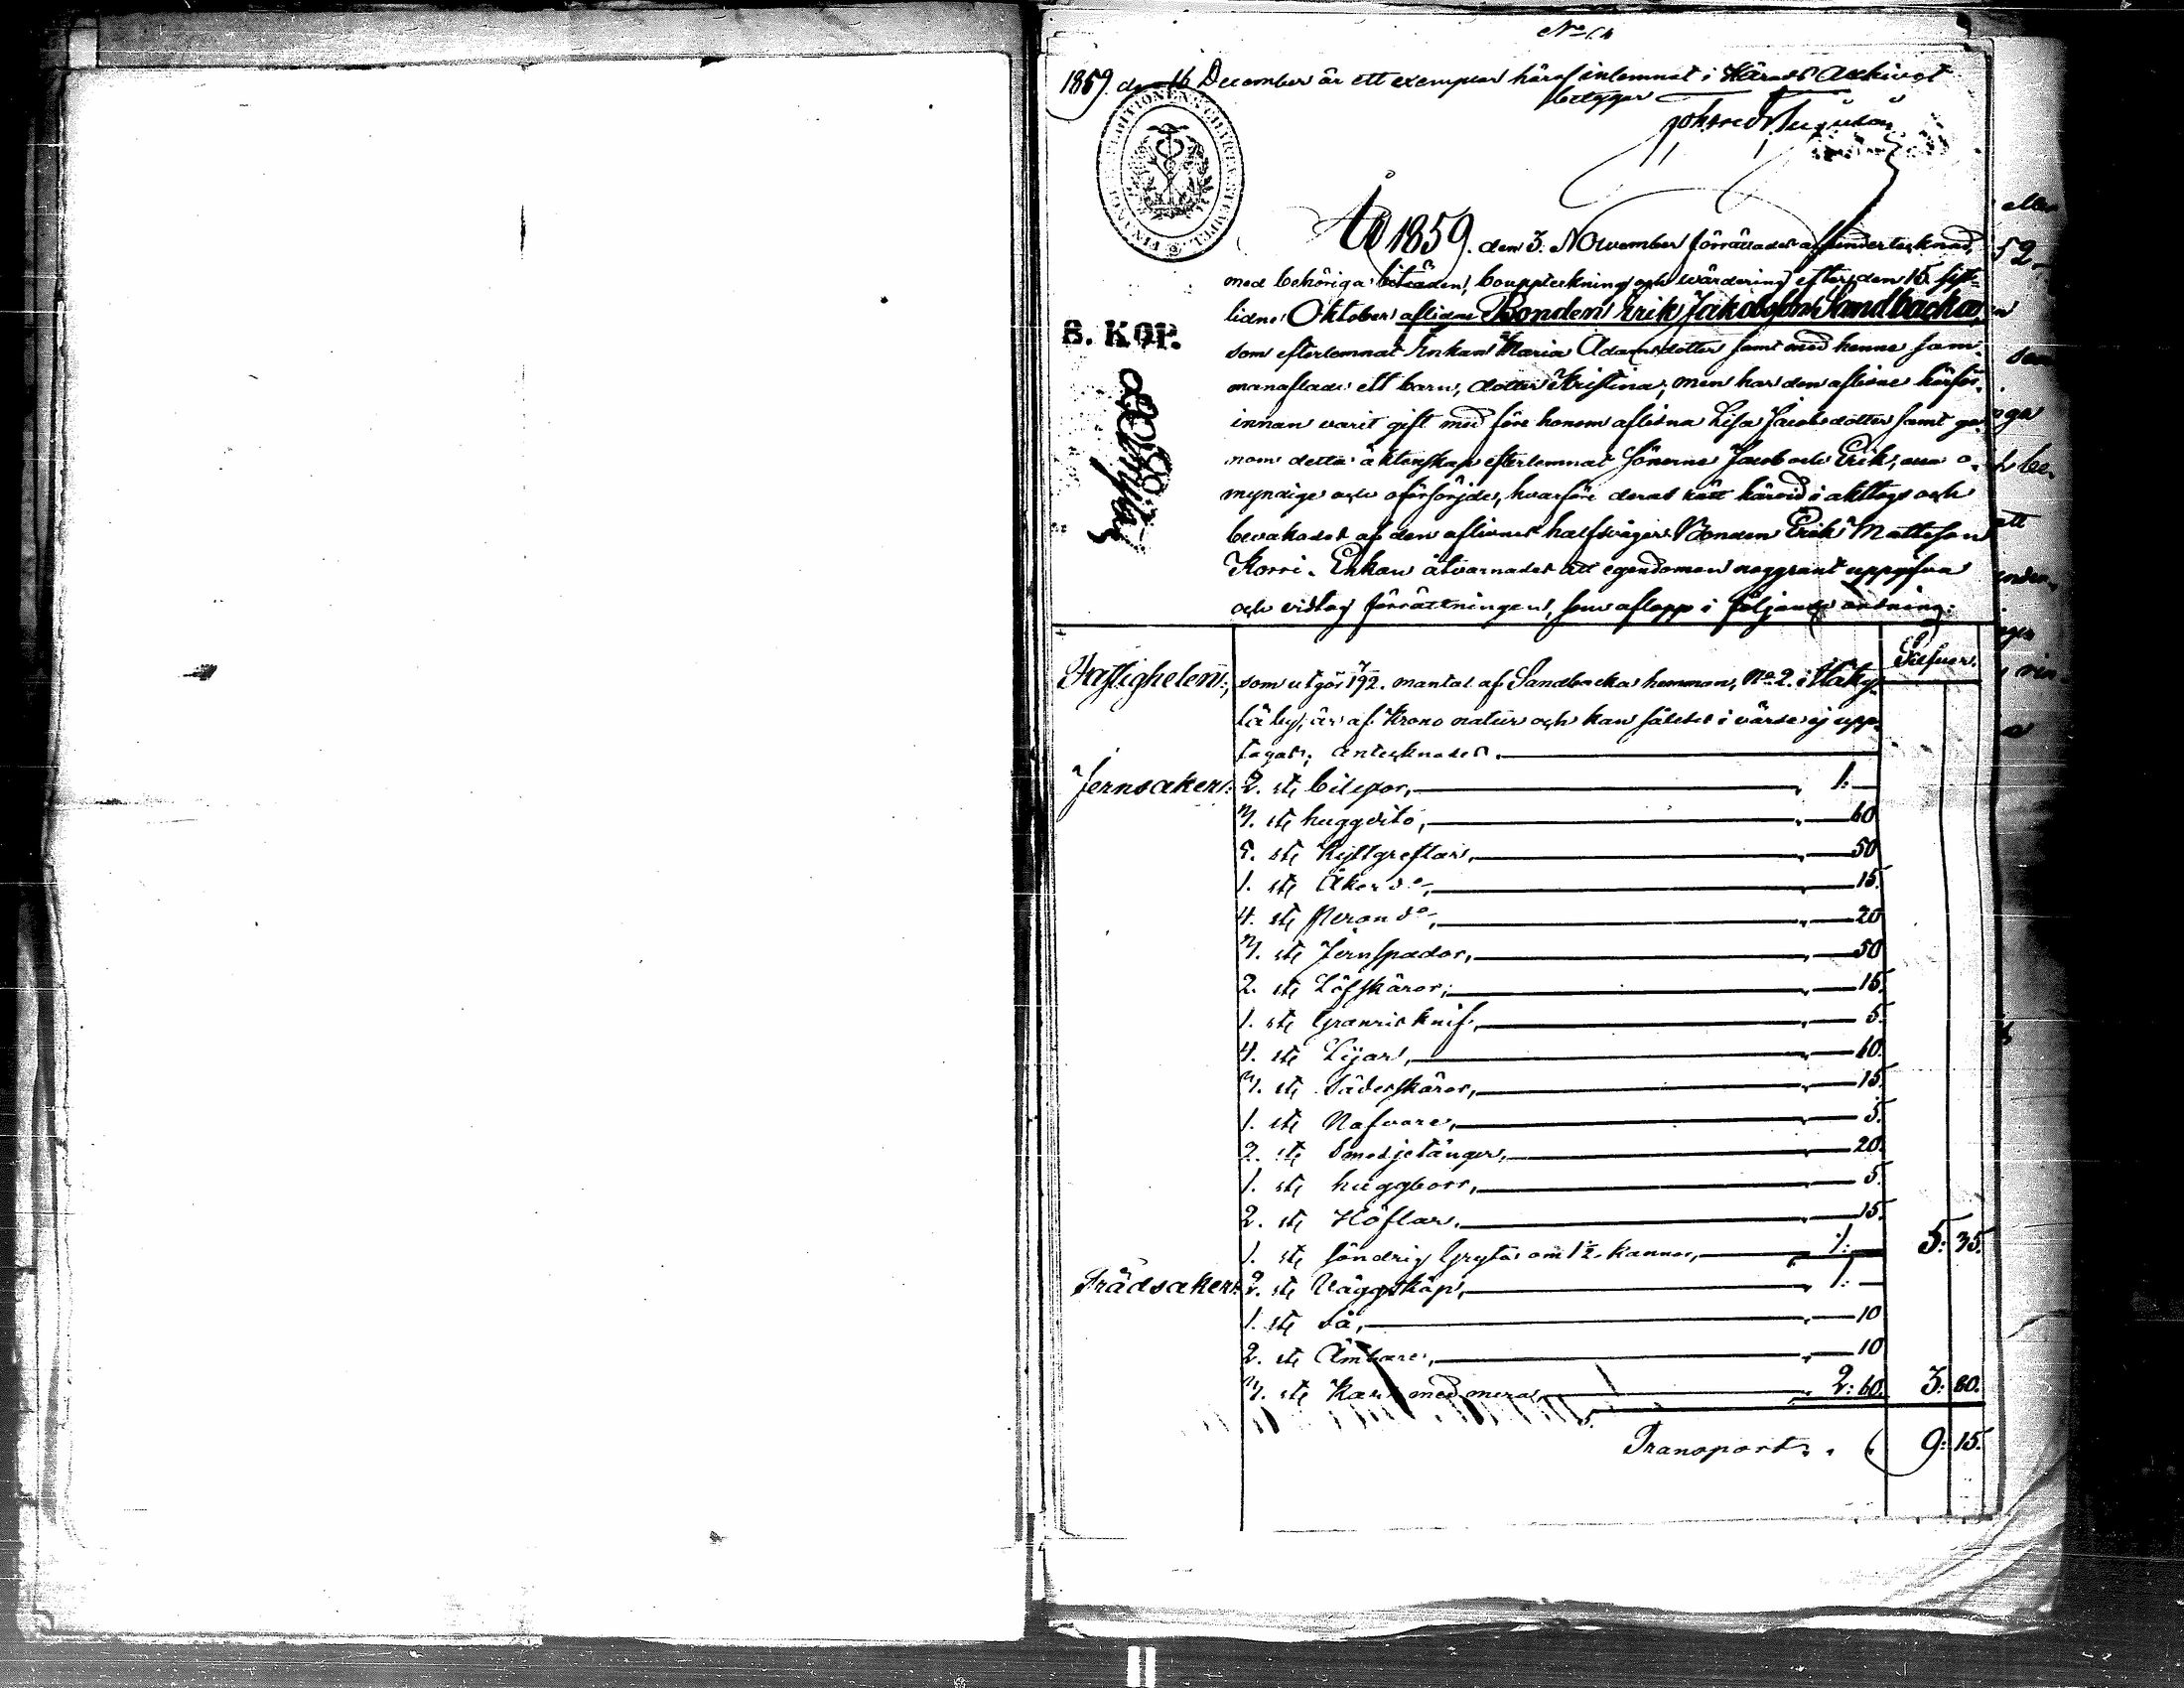 1859. d. 16 December är ett exemplar häraf inlemnat i Härads Arkivet
betygar
FINANCE EXPEDITIONENS CHARTA STEMPEL
8. KOP.
År 1859. den 3. November förrättades af undertecknad,
med behöriga biträden, bouppteckning och wärdering efter den 15. sist-
lidne Oktober aflidne Bonden Erik Jakobsson Sandbacka,
som efterlemnat Enkan Maria Adamsdotter samt med henne sam-
manaflade ett barn, dotter Kristina; men har den aflidne härför-
innan varit gift med före honom aflidna Lisa Jacobsdotter samt ge-
nom detta äktenskap efterlemnat sönerne Jacob och Erik, alla o-
myndige och oförsörjde, hvarföre deras rätt härvid i akttogs och
bevakades af den aflidnes halfsvåger Bonden Erik Mattsson
Korri. Enkan åtvarnades att egendomen noggrant uppgifva
och vidtog förrättningen, som aflopp i följande ordning:
Silfver.
Fastigheten: som utgör 7/192. mantal af Sandbacka hemman, No 2. i
by, är af Krono natur och kan således i värde ej upp-
tagas; antecknades.
Jernsaker: 2. st. bilyxor, 1: —
3. st. huggvito, 60
5. st. Kyttgreftar, 50
1. st. Åker do, 15.
4. st. do, 20
3. st. Jernspador, 50
2. st. Löfskäror, 15.
1. st. Granris knif, 5.
4. st. Lijar, 40.
3. st. Sädesskäror, 15.
1. st. Nafvare, 5.
2. st. Smedjetänger, 20.
1. st. huggborr, 5.
2. st. Höflar, 15.
1. st. söndrig Gryta om 1½ kannor, 1: — 5: 35.
Trädsaker: 2. st. Väggskåp, 1: —
1. st. så, 10
2. st. Ämbare, 10
3. st. Kar med mera, 2: 60. 3: 80.
Transport 9: 15.